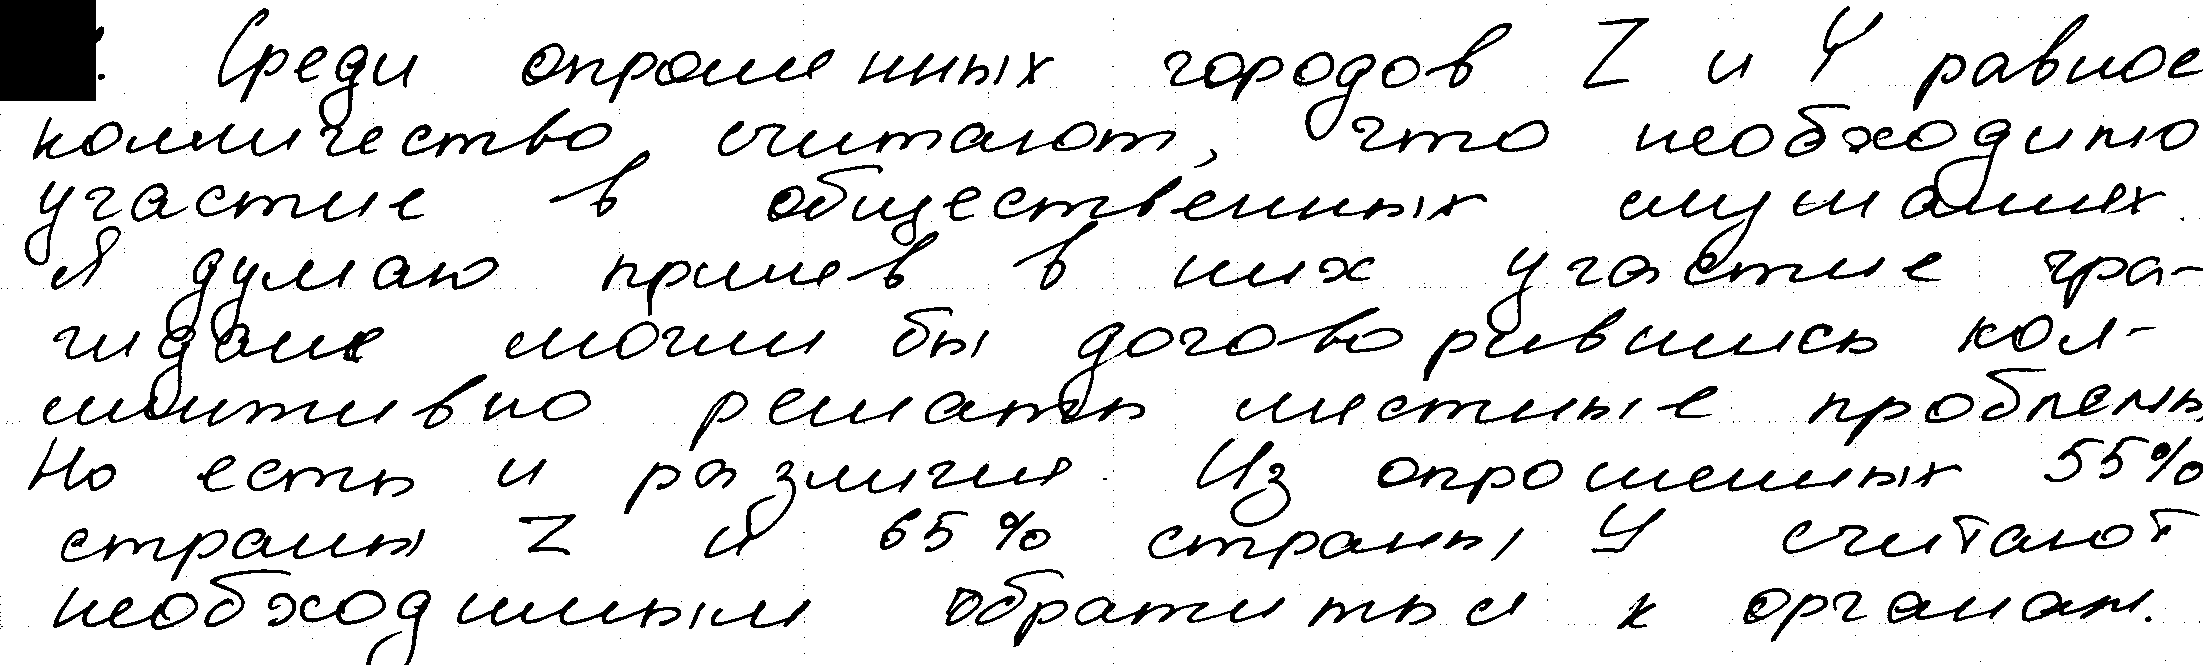 . Среди опрошенных городов Z и Y равное
колличество считают, что необходимо
участие в общественных слушаниях.
Я думаю приняв в них участие гра-
ждане могли бы договорившись кол-
лективно решать местные проблемы
Но есть и различия. Из опрошенных 55%
страны Z и 65% страны У считают
необходимым обратиться к органам.